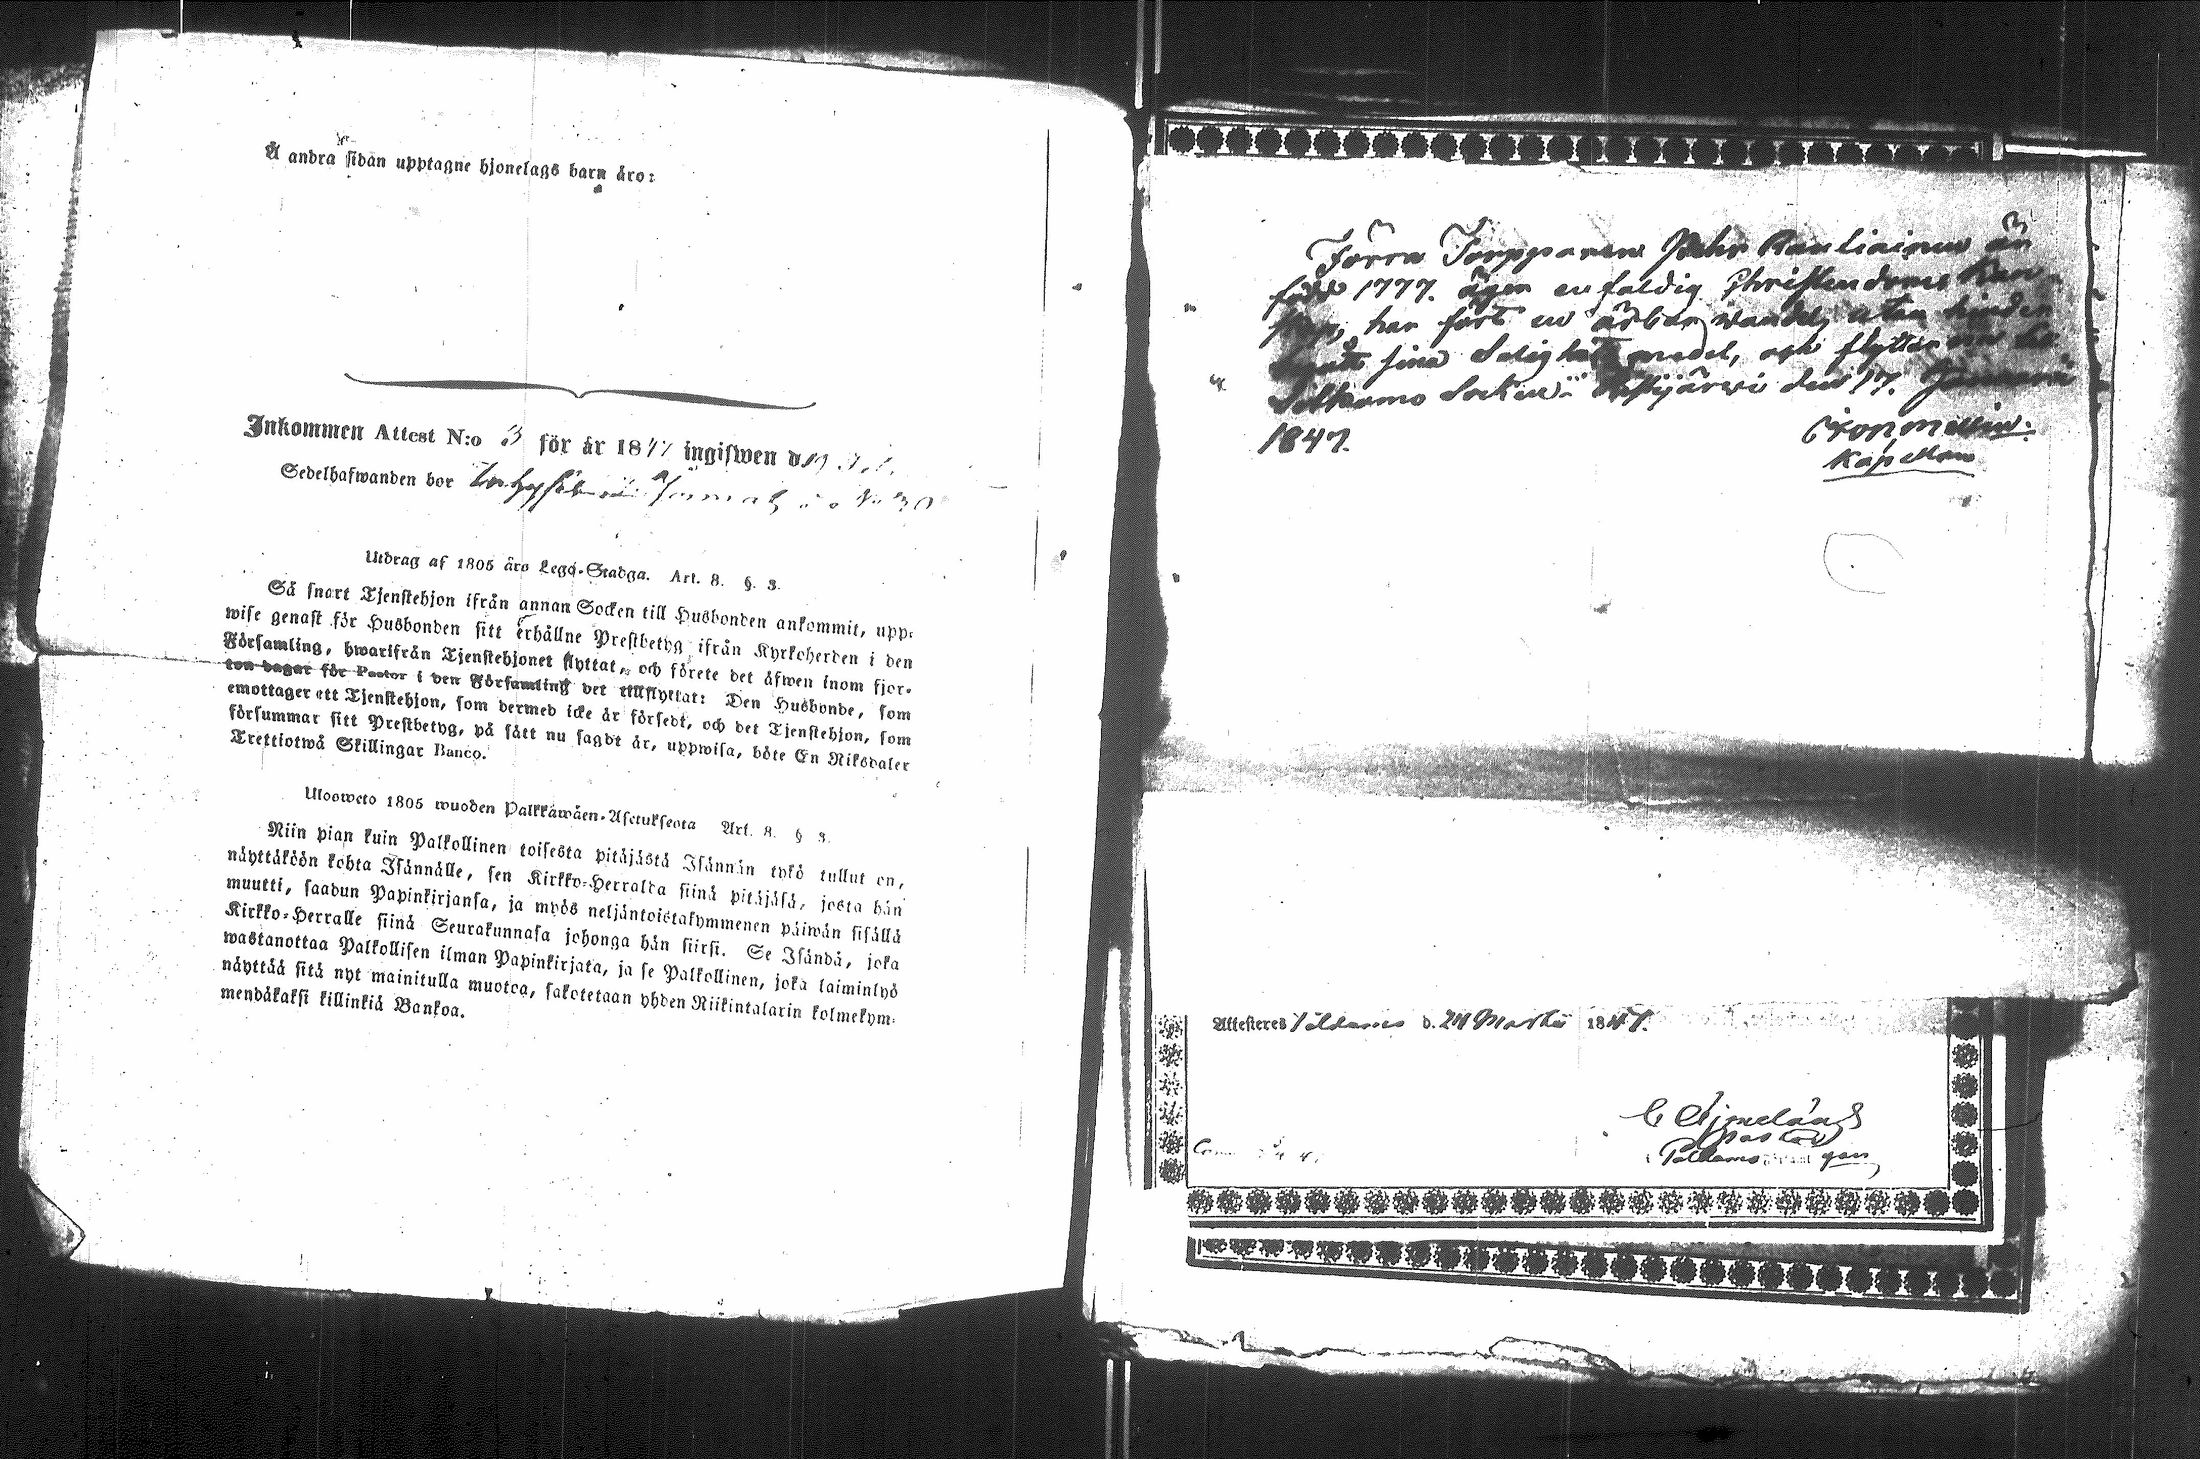 Å andra sidan upptagne hjonelags barn äro:
Inkommen Attest N:o 3 för år 1847 ingifwen d.
Sedelhafwanden bor
Utdrag af 1805 års Lego-Stadga. Art. 8. §. 3.
Så snart Tjenstehjon ifrån annan Socken till Husbonden ankommit, upp-
wise genast för Husbonden sitt erhållne Prestbetyg ifrån Kyrkoherden i den
Församling, hwarifrån Tjenstehjonet flyttat, och förete det äfwen inom fjor-
ton dagar för Pastor i den Församling det tillflyttat: Den Husbonde, som
emottager ett Tjenstehjon, som dermed icke är försedt, och det Tjenstehjon, som
försummar sitt Prestbetyg, på sätt nu sagdt är, uppwisa, böte En Riksdaler
Trettiotwå Skillingar Banco.
Ulosweto 1805 wuoden Palkkawäen-Asetuksesta Art. 8. § 3.
Niin pian kuin Palkollinen toisesta pitäjästä Isännän tykö tullut on,
näyttäköön kohta Isännälle, sen Kirkko-Herralda siinä pitäjäsä, josta hän
muutti, saadun Papinkirjansa, ja myös neljäntoistakymmenen päiwän sisällä
Kirkko-Herralle siinä Seurakunnasa johonga hän siirsi. Se Isändä, joka
wastanottaa Palkollisen ilman Papinkirjata, ja se Palkollinen, joka laiminlyö
näyttää sitä nyt mainitulla muotoa, sakotetaan yhden Riikintalarin kolmekym-
mendäkaksi killinkiä Bankoa.
Förra Torpparen Pehr Rautiainen är
född 1777. äger enfaldig Christendoms kun-
skap, har fört en ärbar wandel, utan hinder
begått sina Salighets medel, och flyttar nu till
Sotkamo Socken. den 17. Januarii
1847.
Kapellan
Attesteres Paldamo d. 24 Martii 1847.
Pastor
Paldamo